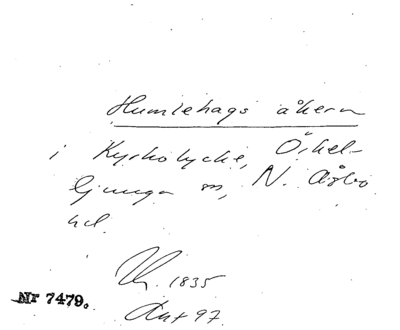 Humlehags åkern
i Kyrkobycke, Örkel-
ljunga sn, N. Åsbo
hd.
1835
Akt 97
Nr 7479.